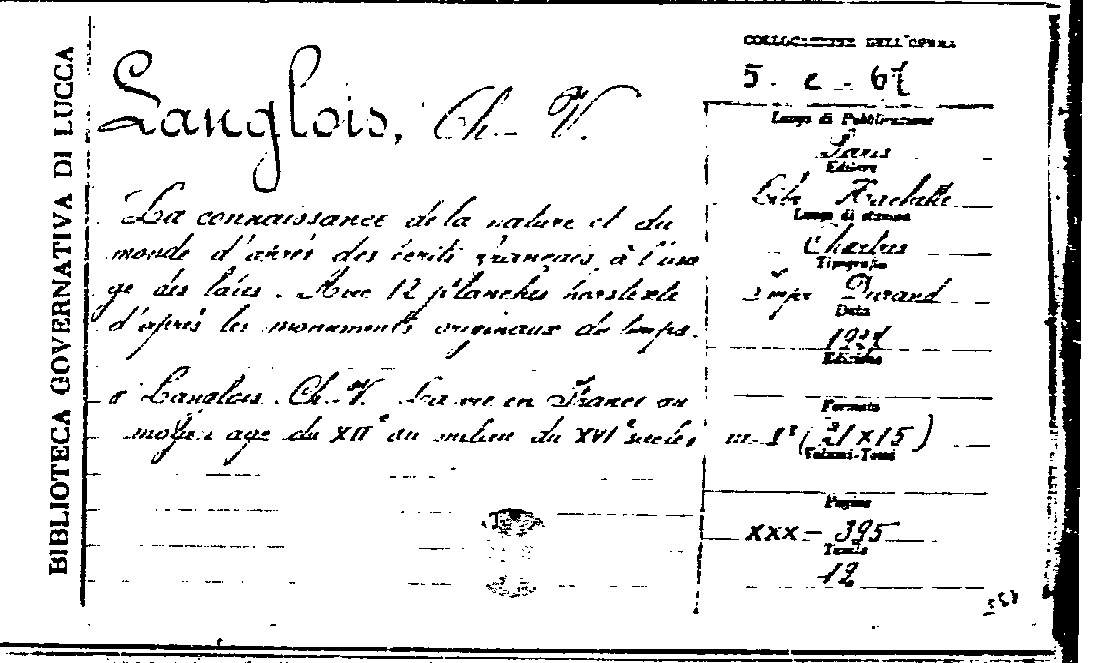 BIBLIOTECA GOVERNATIVA DI LUCCA
Langlois, Ch. V.
La connaissance de la nature et du
monde d'après des écrits français à l'usa
ge des laïcs. Avec 12 planches hors texte
d'après les monuments originaux du temps.
Langlois. Ch. V. La vie en France au
moyen age du XIIe au milieu du XVIe siècles
COLLOCAZIONE DELL'OPERA
5. c. 67
Luogo di Pubblicazione
Paris
Editore
Libr. Hachette
Luogo di stampa
Chartres
Tipografia
Impr. Durand
Data
1927
Edizione
Formato
in-8° (21x15)
Volumi-Tomi
Pagine
XXX - 395
Tavole
12